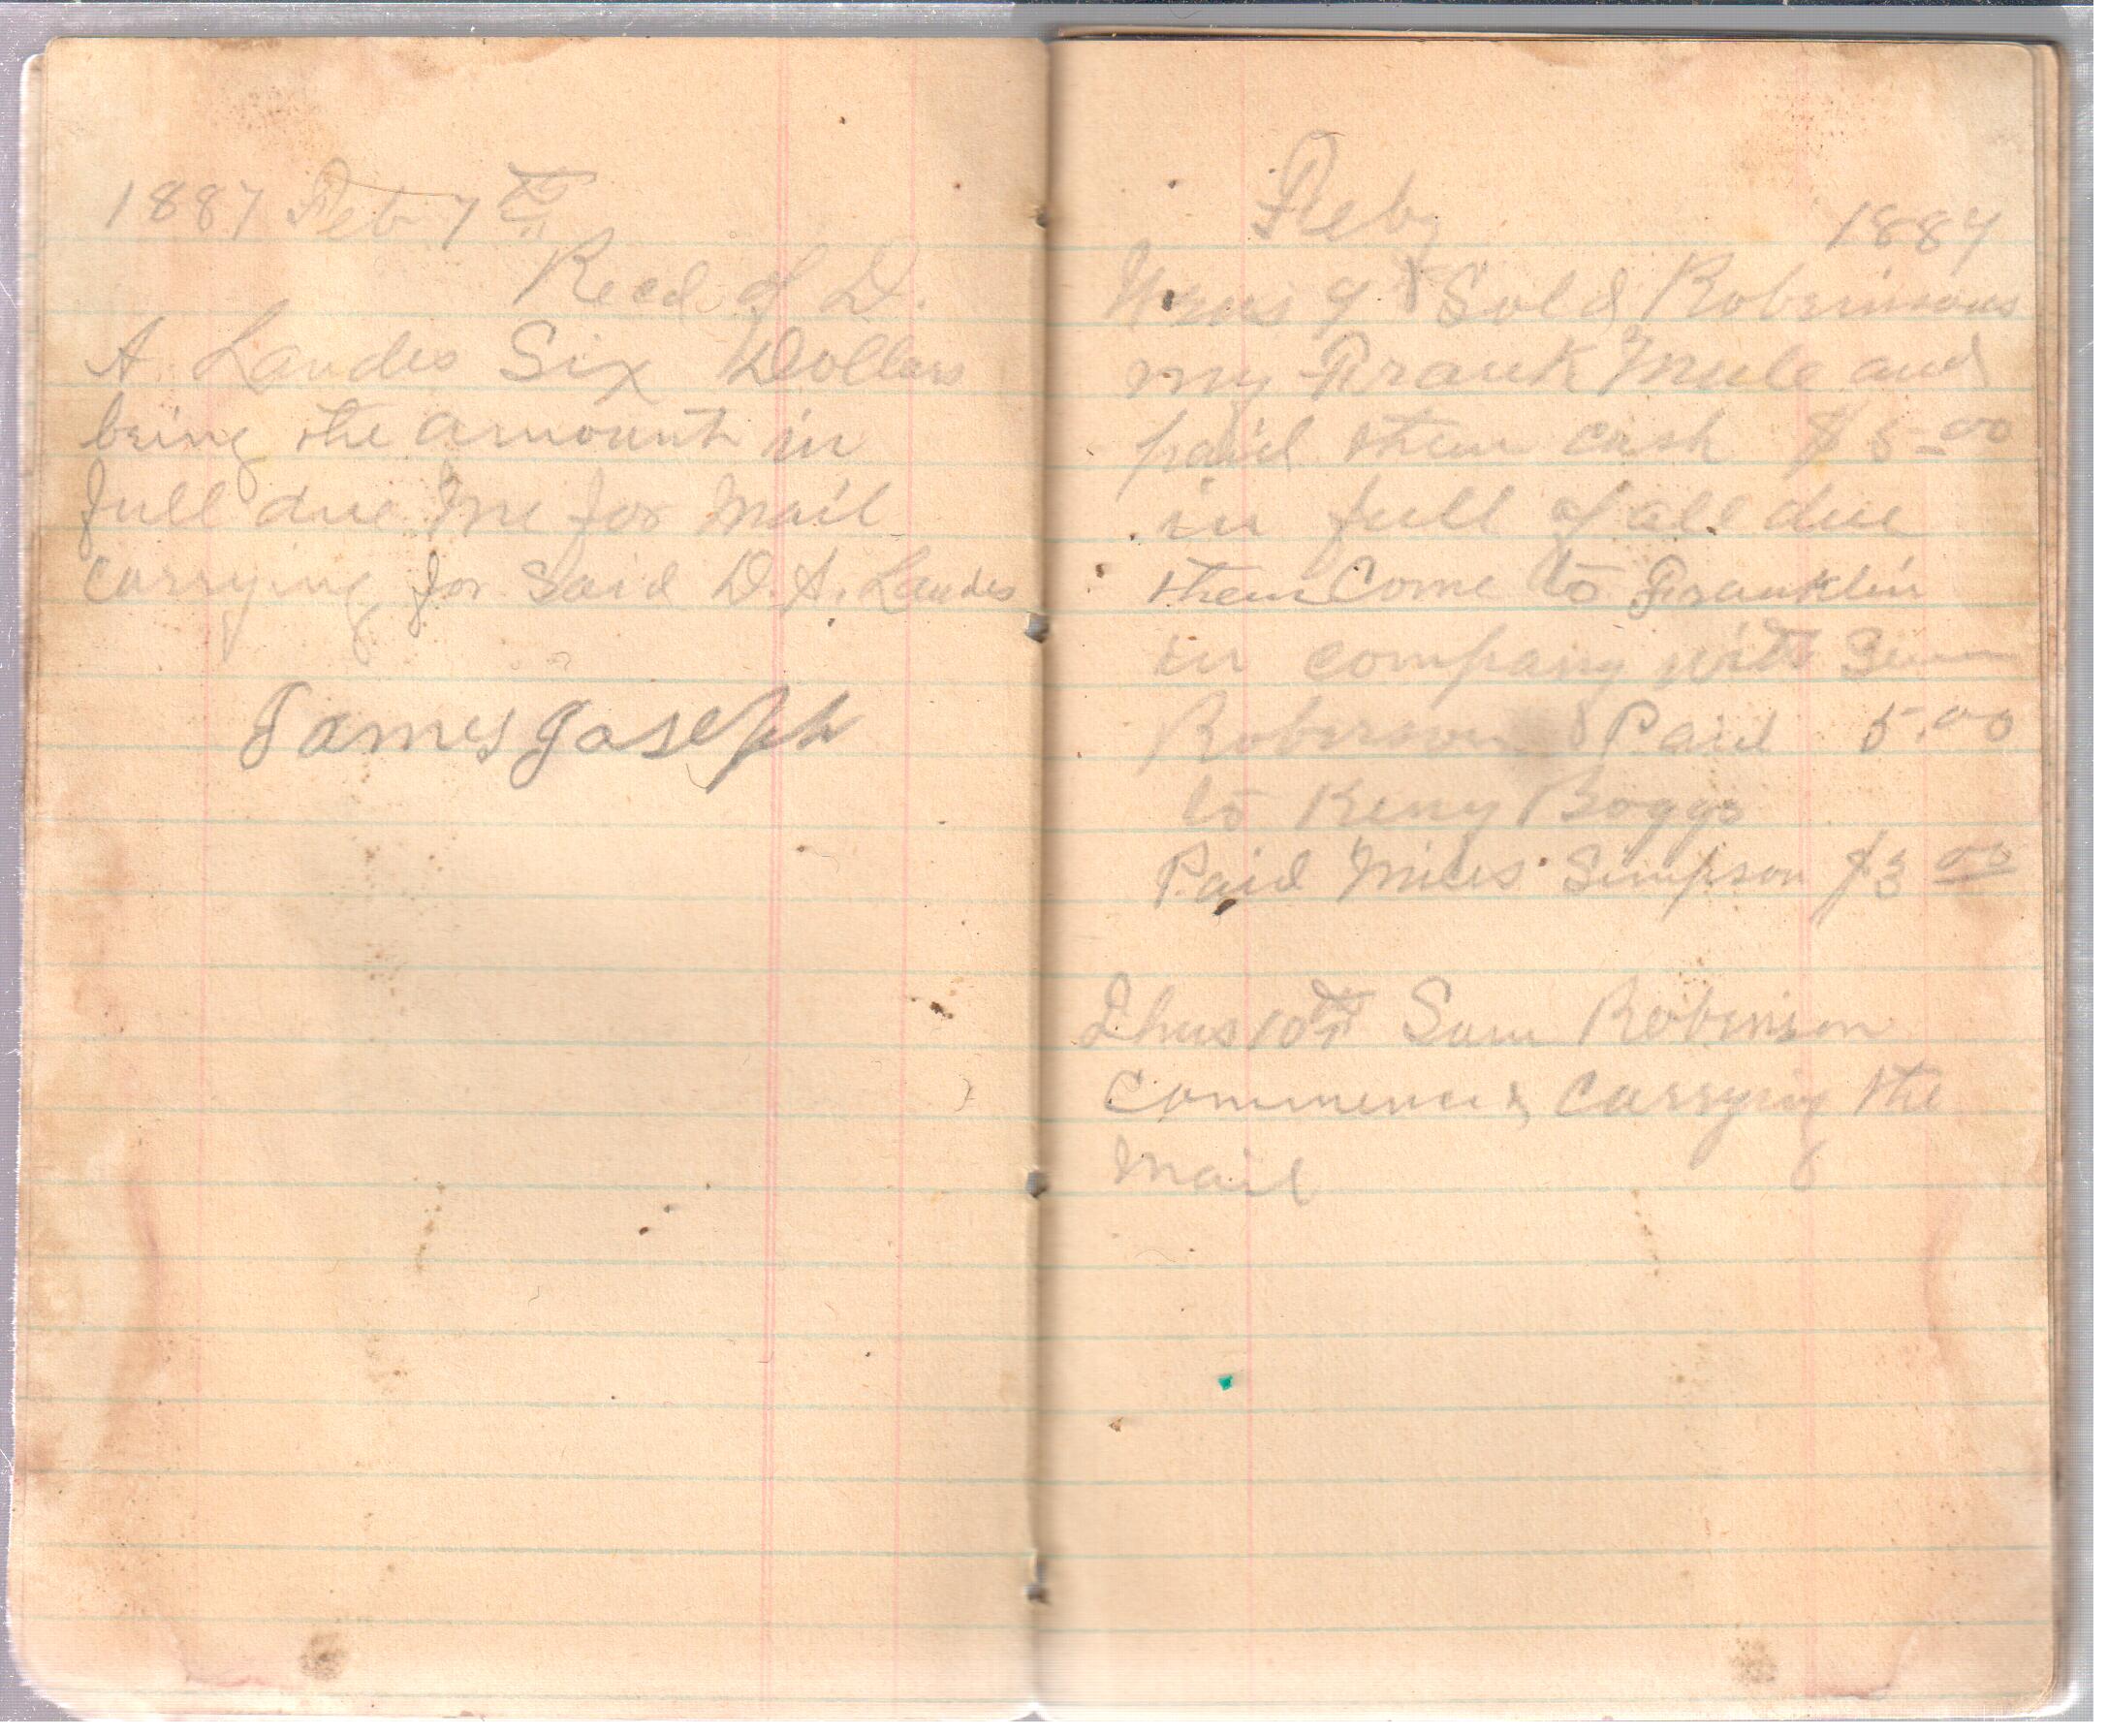 1887 Feb 7th
Recd of D.
A. Landes Six Dollars
being the amount in
full due me for mail
carrying for said D. A. Landes
James Joseph
Feby 1887
9 Sold Robinsons
my Frank Mule and
paid them cash $5-00
in full of all due
them Come to Franklin
in company with
Roberson Paid 5.00
to Keny Boggs
Paid Miles Simpson $3 00
Thus 10th Sam Robinson
Commenced carrying the
mail